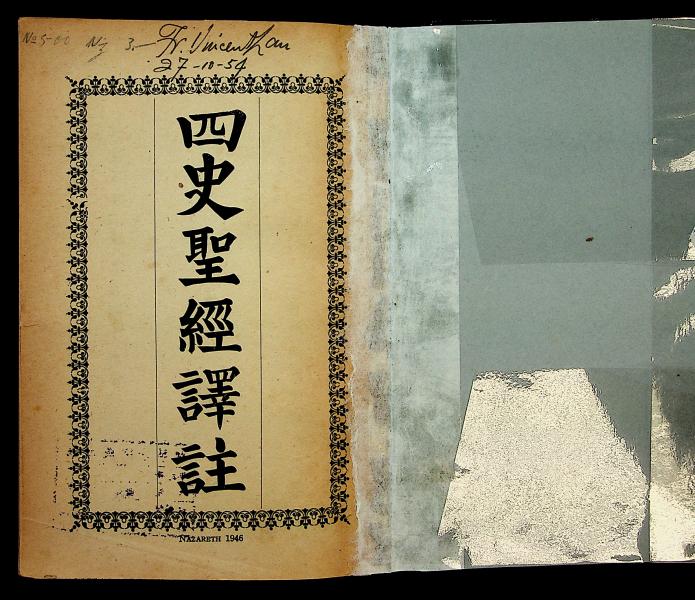 No 5-00 No 3.— Fr. Vincent Lau
27-10-54
四史聖經譯註
NAZARETH 1946